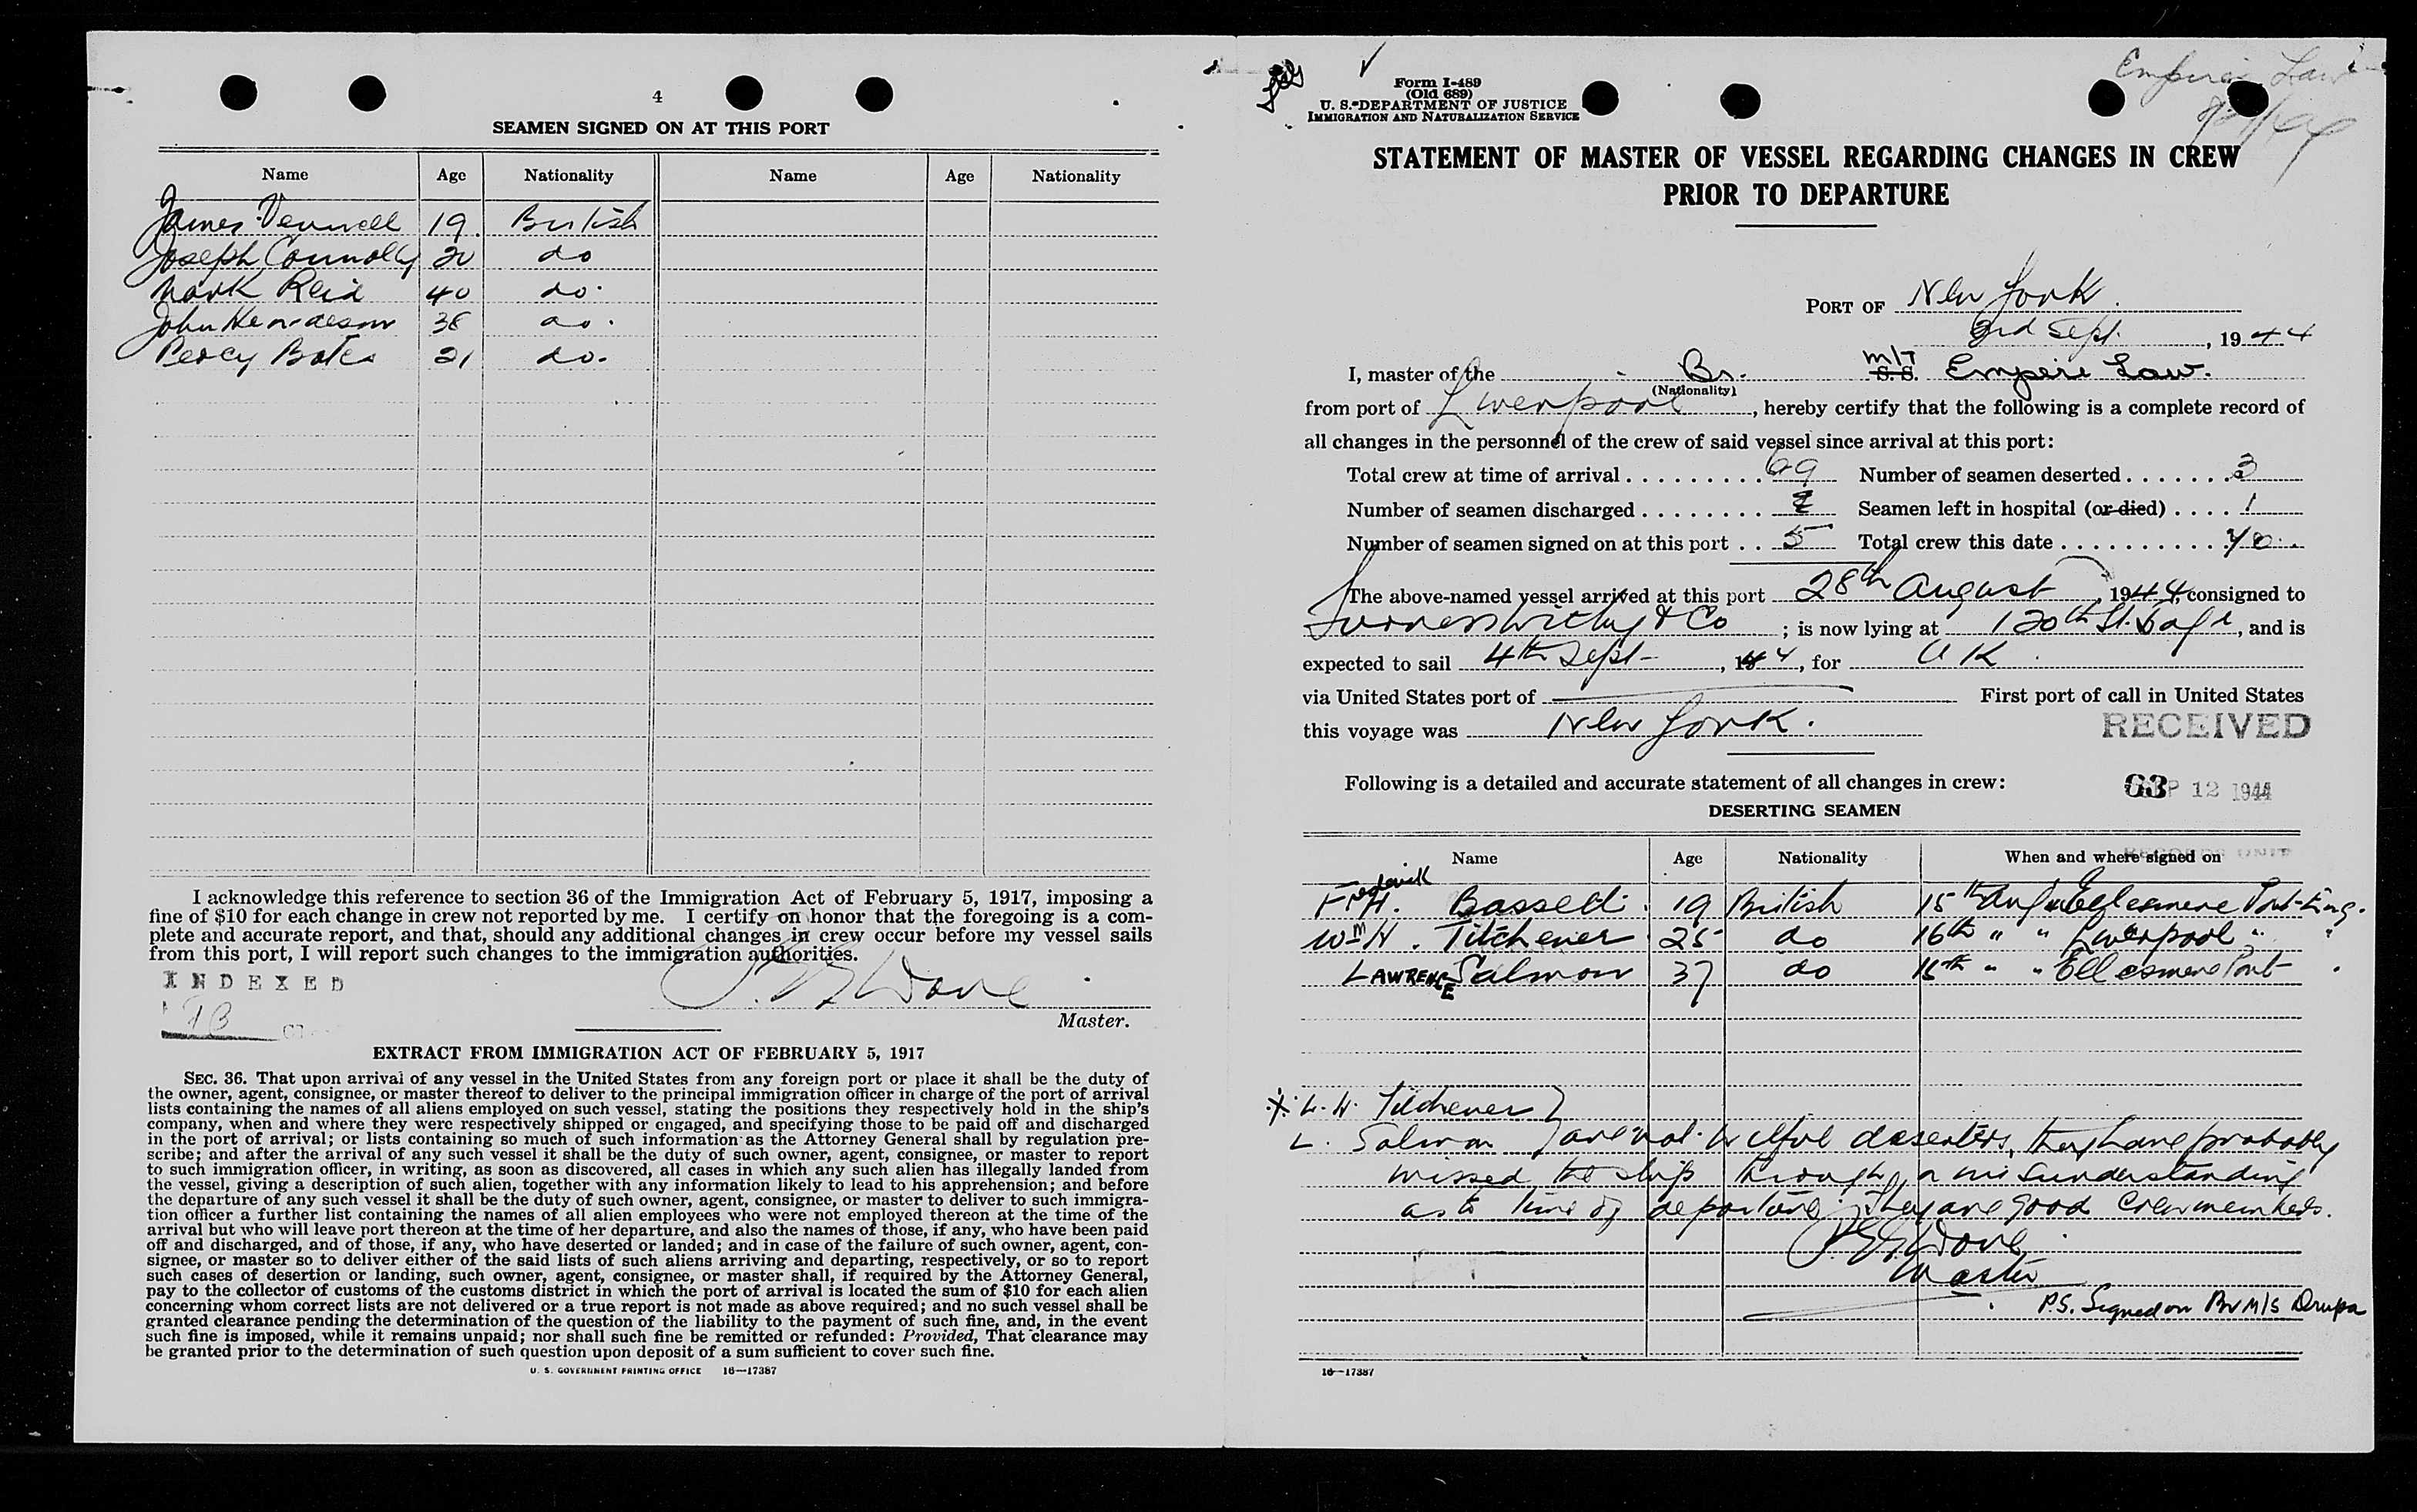 4
SEAMEN SIGNED ON AT THIS PORT
Name Age Nationality Name Age Nationality
James Vennell 19 British
Joseph Connolly 20 do
Mark Reid 40 do.
John Henderson 38 do.
Percy Bates 21 do.
I acknowledge this reference to section 36 of the Immigration Act of February 5, 1917, imposing a
fine of $10 for each change in crew not reported by me. I certify on honor that the foregoing is a com-
plete and accurate report, and that, should any additional changes in crew occur before my vessel sails
from this port, I will report such changes to the immigration authorities.
INDEXED
Dove
Master.
EXTRACT FROM IMMIGRATION ACT OF FEBRUARY 5, 1917
SEC. 36. That upon arrival of any vessel in the United States from any foreign port or place it shall be the duty of
the owner, agent, consignee, or master thereof to deliver to the principal immigration officer in charge of the port of arrival
lists containing the names of all aliens employed on such vessel, stating the positions they respectively hold in the ship's
company, when and where they were respectively shipped or engaged, and specifying those to be paid off and discharged
in the port of arrival; or lists containing so much of such information as the Attorney General shall by regulation pre-
scribe; and after the arrival of any such vessel it shall be the duty of such owner, agent, consignee, or master to report
to such immigration officer, in writing, as soon as discovered, all cases in which any such alien has illegally landed from
the vessel, giving a description of such alien, together with any information likely to lead to his apprehension; and before
the departure of any such vessel it shall be the duty of such owner, agent, consignee, or master to deliver to such immigra-
tion officer a further list containing the names of all alien employees who were not employed thereon at the time of the
arrival but who will leave port thereon at the time of her departure, and also the names of those, if any, who have been paid
off and discharged, and of those, if any, who have deserted or landed; and in case of the failure of such owner, agent, con-
signee, or master so to deliver either of the said lists of such aliens arriving and departing, respectively, or so to report
such cases of desertion or landing, such owner, agent, consignee, or master shall, if required by the Attorney General,
pay to the collector of customs of the customs district in which the port of arrival is located the sum of $10 for each alien
concerning whom correct lists are not delivered or a true report is not made as above required; and no such vessel shall be
granted clearance pending the determination of the question of the liability to the payment of such fine, and, in the event
such fine is imposed, while it remains unpaid; nor shall such fine be remitted or refunded: Provided, That clearance may
be granted prior to the determination of such question upon deposit of a sum sufficient to cover such fine.
U. S. GOVERNMENT PRINTING OFFICE 16—17387
Form I-489
(Old 689)
U. S. DEPARTMENT OF JUSTICE
IMMIGRATION AND NATURALIZATION SERVICE
Empire Law
STATEMENT OF MASTER OF VESSEL REGARDING CHANGES IN CREW
PRIOR TO DEPARTURE
PORT OF New York.
3rd Sept., 1944
I, master of the Br. M/T S.S. Empire Law.
(Nationality)
from port of Liverpool, hereby certify that the following is a complete record of
all changes in the personnel of the crew of said vessel since arrival at this port:
Total crew at time of arrival 69 Number of seamen deserted 3
Number of seamen discharged Seamen left in hospital (or died) 1
Number of seamen signed on at this port 5 Total crew this date 70.
The above-named vessel arrived at this port 28th August, 1944, consigned to
Furness Withy & Co; is now lying at 130th St., and is
expected to sail 4th Sept, 1944, for U K.
via United States port of First port of call in United States
this voyage was New York.
RECEIVED
Following is a detailed and accurate statement of all changes in crew:
63 P 12 1944
DESERTING SEAMEN
RECORDS UNIT
Name Age Nationality When and where signed on
Frederick
H. Bassett. 19 British 15th Aug Ellesmere Port-Eng.
Wm H. Titchener 25 do 16th " " Liverpool " "
LAWRENCE Salmon 37 do 15th " " Ellesmere Port
W. H. Titchener }
L. Salmon } are not wilful deserters, they have probably
missed the ship through a misunderstanding
as to time of departure. They are good crew members.
Dove
Master
P.S. Signed on Br M/S Drupa
16—17387